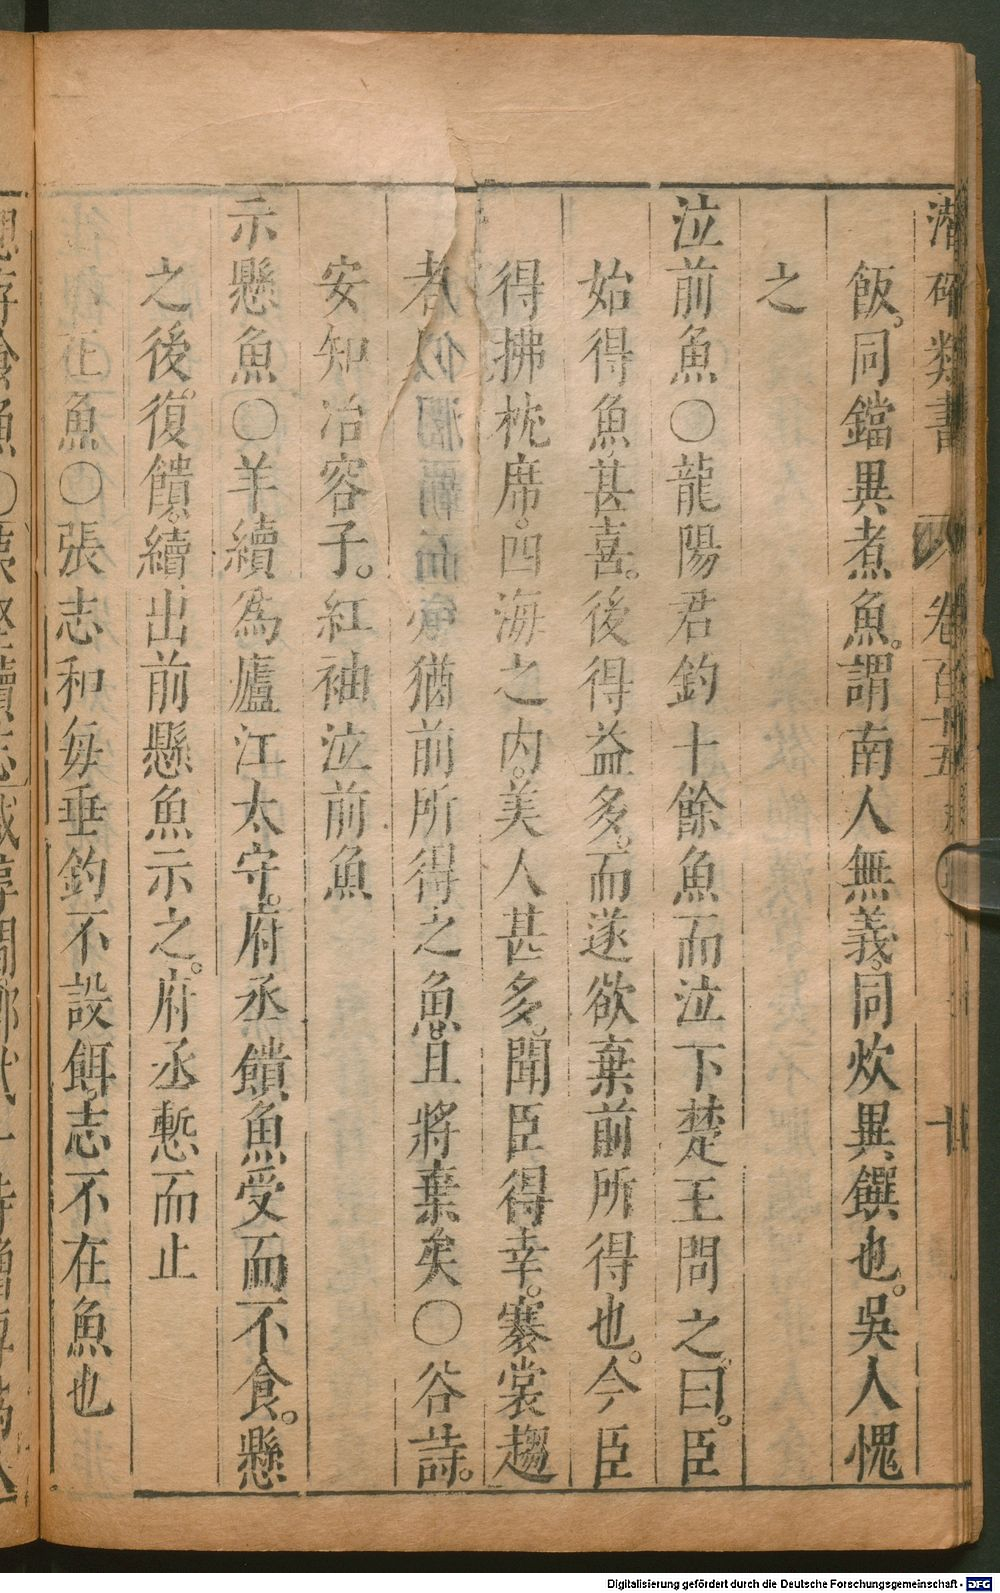 潛确類書 卷百十五 廿
飯。同鐺異煮魚。謂南人無義。同炊異饌也。吳人愧
之
泣前魚○龍陽君釣十餘魚而泣下楚王問之。曰。臣
始得魚甚喜。後得益多。而遂欲棄前所得也。今臣
得拂枕席。四海之内。美人甚多。聞臣得幸。褰裳趨
者猶前所得之魚。且將棄矣○谷詩。
安知冶容子。紅袖泣前魚
示懸魚○羊續為廬江太守。府丞饋魚受而不食。懸
之後。復饋。續出前懸魚示之。府丞慙而止
魚○張志和每垂釣不設餌。志不在魚也
Digitalisierung gefördert durch die Deutsche Forschungsgemeinschaft - DFG